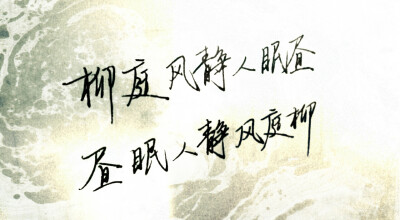 柳庭风静人眠昼
昼眠人静风庭柳